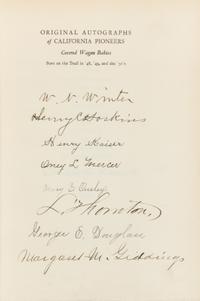 ORIGINAL AUTOGRAPHS
of CALIFORNIA PIONEERS
Covered Wagon Babies
Born on the Trail in '48, '49, and the 50's
W. N. Winter
Henry C Hoskins
Henry Kaiser
Oney L Mercer
Mary E
L. Thornton,
George E. Douglass
Margaret M. Giddings